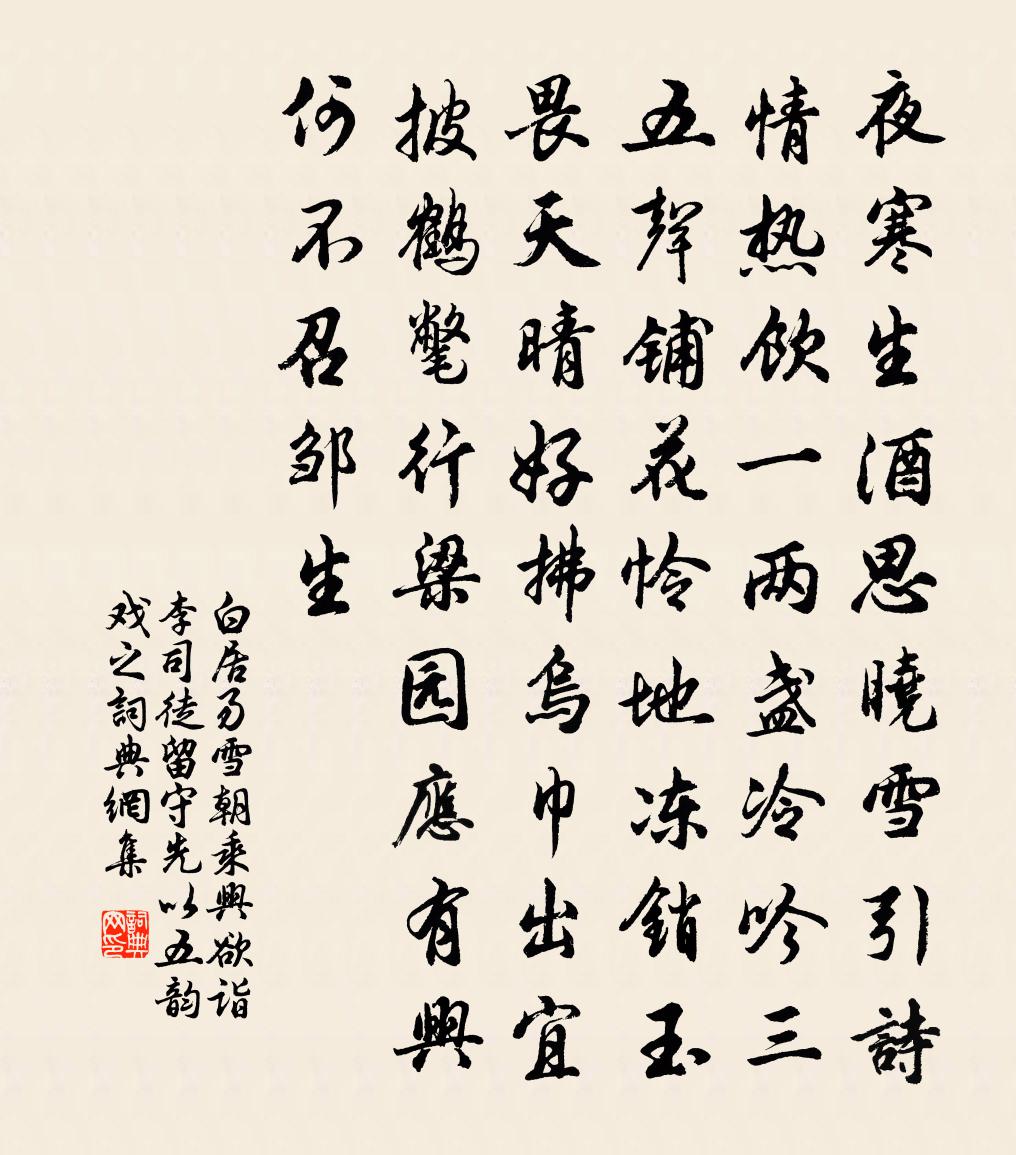 夜寒生酒思曉雪引詩
情热飲一两盏冷吟三
五聲鋪花怜地冻銷玉
畏天晴好拂烏巾出宜
披鶴氅行梁园應有興
何不召邹生
白居易雪朝乘興欲詣
李司徒留守先以五韵
戏之詞典網集
詞典网印